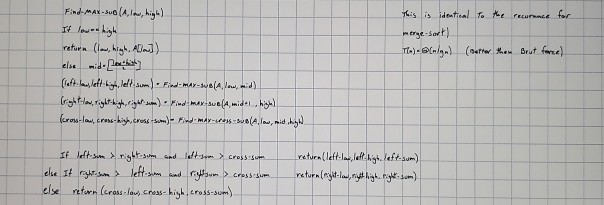 Find-MAX-SUB(A, low, high)
If low == high
return (low, high, A[low])
else mid = [low+high/2]
(left-low, left-high, left-sum) = Find-MAX-SUB(A, low, mid)
(right-low, right-high, right-sum) = Find-MAX-SUB(A, mid+1, high)
(cross-low, cross-high, cross-sum) = Find-MAX-cross-SUB(A, low, mid, high)
If left-sum > right-sum and left-sum > cross-sum return (left-low, left-high, left-sum)
else If right-sum > left-sum and right-sum > cross-sum return (right-low, right-high, right-sum)
else return (cross-low, cross-high, cross-sum)
This is identical To the recurrance for
merge-sort)
T(n) = Θ(n lg n) (better than Brut force)